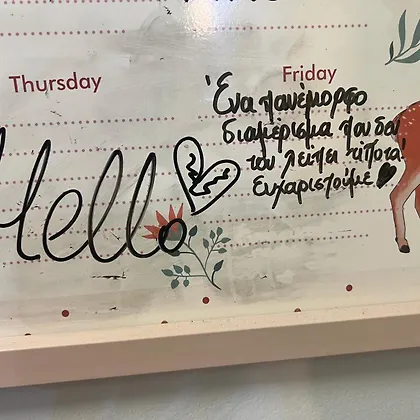 Thursday
Friday
Hello
Ένα πανέμορφο
διαμέρισμα που δεν
του λείπει τίποτα!
Ευχαριστούμε